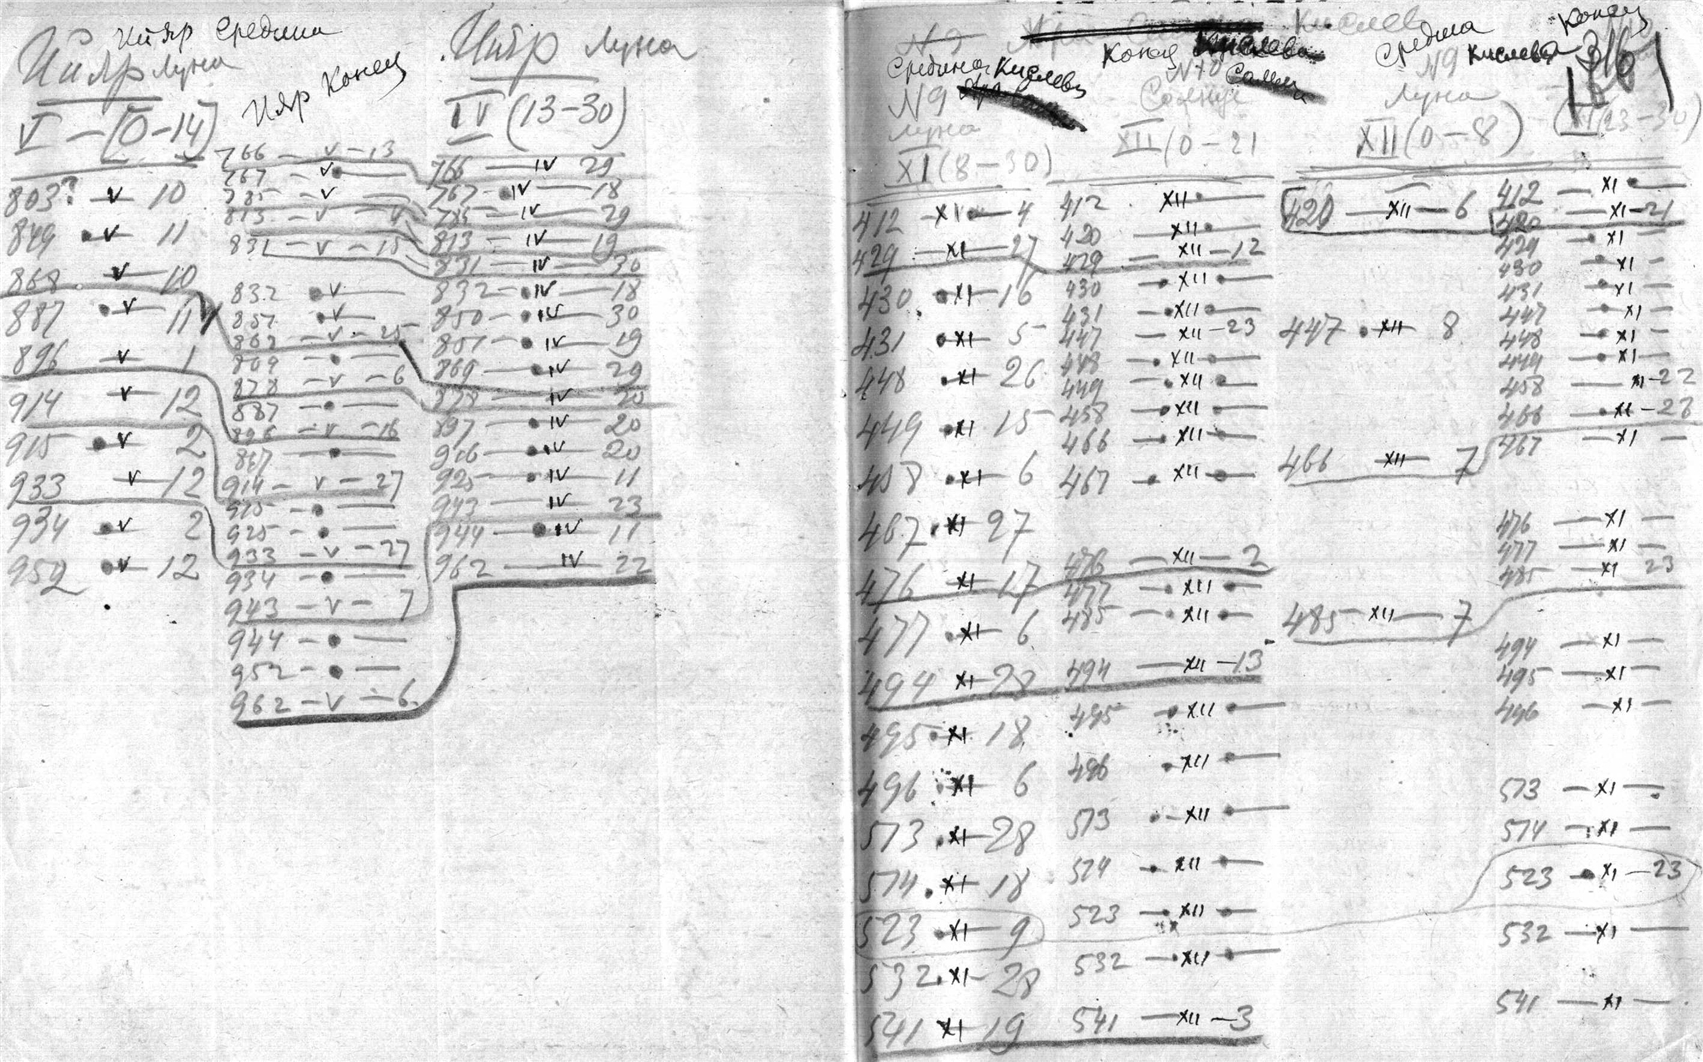 Ийяр Средина
Ийяр Луна
V — (0-14)
803? v 10
849 • v 11
868 v 10
887 • v 11
896 v 1
914 v 12
915 • v 2
933 v 12
934 • v 2
952 • v 12
Ияр Конец
766 — v — 13
767 — v • —
785 — v —
813 — v —
831 — v — 15
832 • v —
851 • v —
869 — • —
878 — v — 6
887 — • —
896 — v — 16
897 — • —
914 — v — 27
915 — • —
925 — • —
933 — v — 27
934 — • —
943 — v — 7
944 — • —
952 — • —
962 — v — 6
Ийяр Луна
IV (13-30)
766 — IV 29
767 • IV — 18
785 — IV — 29
813 — IV — 19
831 — IV — 30
832 — • IV — 18
850 — • IV — 30
851 — • IV — 19
869 — • IV — 29
878 — IV — 20
897 — • IV — 20
906 — • IV — 20
925 — • IV — 11
943 — IV — 23
944 — • IV — 11
962 — IV — 22
Средина Кислев
N9
Луна
XI (8-30)
412 — XI • — 4
429 — XI — 27
430 • XI — 16
431 • XI — 5
448 • XI — 26
449 • XI — 15
458 • XI — 6
467 • XI — 27
476 XI — 17
477 • XI — 6
494 XI — 28
495 • XI 18
496 • XI 6
513 • XI — 28
514 • XI — 18
523 • XI — 9
532 • XI — 28
541 XI — 19
Конец
N10
Солнце
XII (0-21
412 XII • —
420 XII • —
429 — XII — 12
430 — • XII • —
431 — • XII • —
447 — XII — 23
448 — • XII • —
449 — • XII • —
458 — • XII • —
466 — • XII • —
467 — • XII • —
476 — XII — 2
477 — • XII •
485 — • XII •
494 — XII — 13
495 — • XII • —
496 • XII • —
513 • XII • —
514 • XII • —
523 — • XII • —
532 — • XII • —
541 — XII — 3
Средина
N9 Кислева
Луна
XII (0-8)
420 — XII — 6
447 • XII — 8
466 XII — 7
485 — XII — 7
Конец
316
XI (23-30)
412 — XI • —
420 — XI — 21
429 • XI —
430 • XI —
431 • XI —
447 • XI —
448 • XI —
449 • XI —
458 — XI — 22
466 • XI — 23
467 — XI —
476 — XI —
477 — XI —
485 — XI 23
494 — XI —
495 — XI —
496 — XI —
513 — XI —
514 — XI —
523 • XI — 23
532 — XI —
541 — XI —